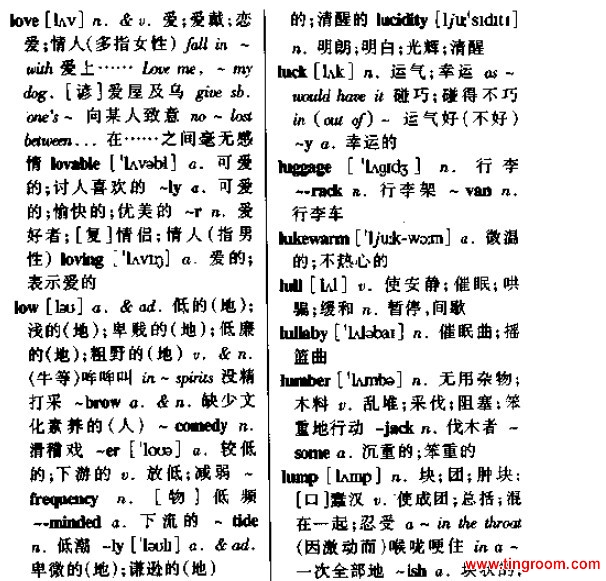 love [lʌv] n. & v. 爱;爱戴;恋
爱;情人(多指女性) fall in ~
with 爱上…… Love me, ~ my
dog. [谚]爱屋及乌 give sb.
one's ~ 向某人致意 no ~ lost
between... 在……之间毫无感
情 lovable ['lʌvəbl] a. 可爱
的;讨人喜欢的 ~ly a. 可爱
的;愉快的;优美的 ~r n. 爱
好者;[复]情侣;情人(指男
性) loving ['lʌvɪŋ] a. 爱的;
表示爱的
low [ləʊ] a. & ad. 低的(地);
浅的(地);卑贱的(地);低廉
的(地);粗野的(地) v. & n.
(牛等)哞哞叫 in ~ spirits 没精
打采 ~brow a. & n. 缺少文
化素养的(人) ~ comedy n.
滑稽戏 ~er ['ləʊə] a. 较低
的;下游的 v. 放低;减弱 ~
frequency n. [物]低频
~-minded a. 下流的 ~ tide
n. 低潮 ~ly ['ləʊlɪ] a. & ad.
卑微的(地);谦逊的(地)
的;清醒的 lucidity [ljuː'sɪdɪtɪ]
n. 明朗;明白;光辉;清醒
luck [lʌk] n. 运气;幸运 as ~
would have it 碰巧;碰得不巧
in (out of) ~ 运气好(不好)
~y a. 幸运的
luggage ['lʌgɪdʒ] n. 行李
~-rack n. 行李架 ~ van n.
行李车
lukewarm ['ljuːk-wɔːm] a. 微温
的;不热心的
lull [lʌl] v. 使安静;催眠;哄
骗;缓和 n. 暂停,间歇
lullaby ['lʌləbaɪ] n. 催眠曲;摇
篮曲
lumber ['lʌmbə] n. 无用杂物;
木料 v. 乱堆;采伐;阻塞;笨
重地行动 ~jack n. 伐木者 ~
some a. 沉重的;笨重的
lump [lʌmp] n. 块;团;肿块;
[口]蠢汉 v. 使成团;总括;混
在一起;忍受 a ~ in the throat
(因激动而)喉咙哽住 in a ~
一次全部地 ~ish a. 块状的;
www.tingroom.com